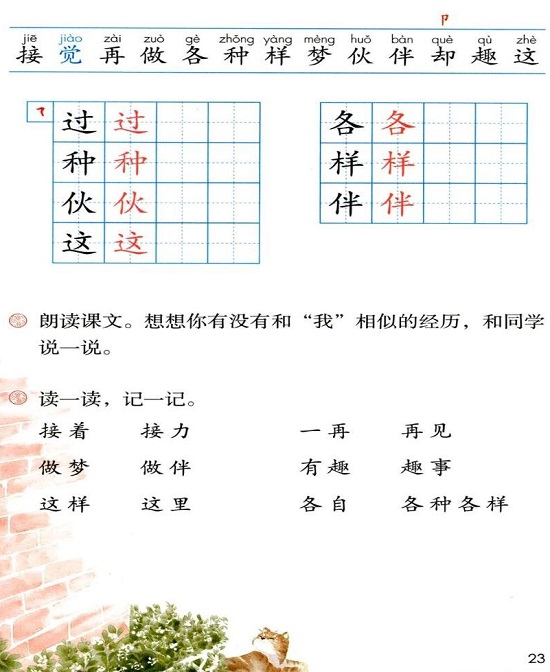 卩
jiē jiào zài zuò gè zhǒng yàng mèng huǒ bàn què qù zhè
接 觉 再 做 各 种 样 梦 伙 伴 却 趣 这
㇀ 过 过 各 各
种 种 样 样
伙 伙 伴 伴
这 这
朗读课文。想想你有没有和“我”相似的经历，和同学
说一说。
读一读，记一记。
接着 接力 一再 再见
做梦 做伴 有趣 趣事
这样 这里 各自 各种各样
23